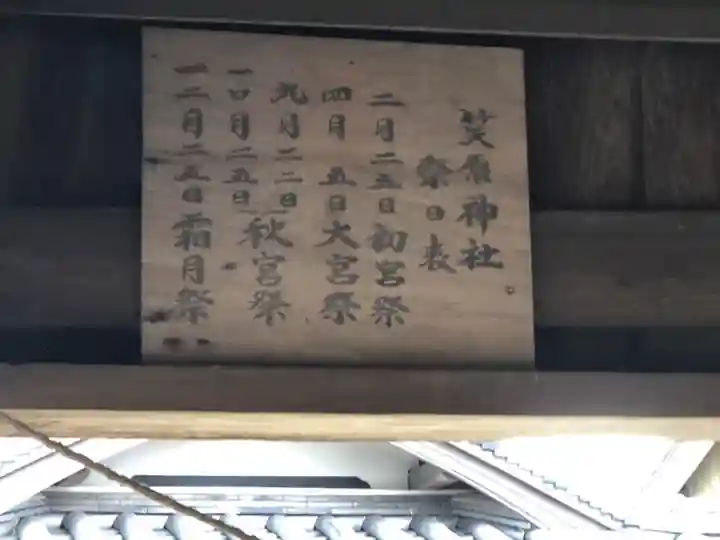 笑原神社
祭日表
二月二五日初宮祭
四月 五日大宮祭
九月二二日
一〇月二五日秋宮祭
一二月二五日霜月祭